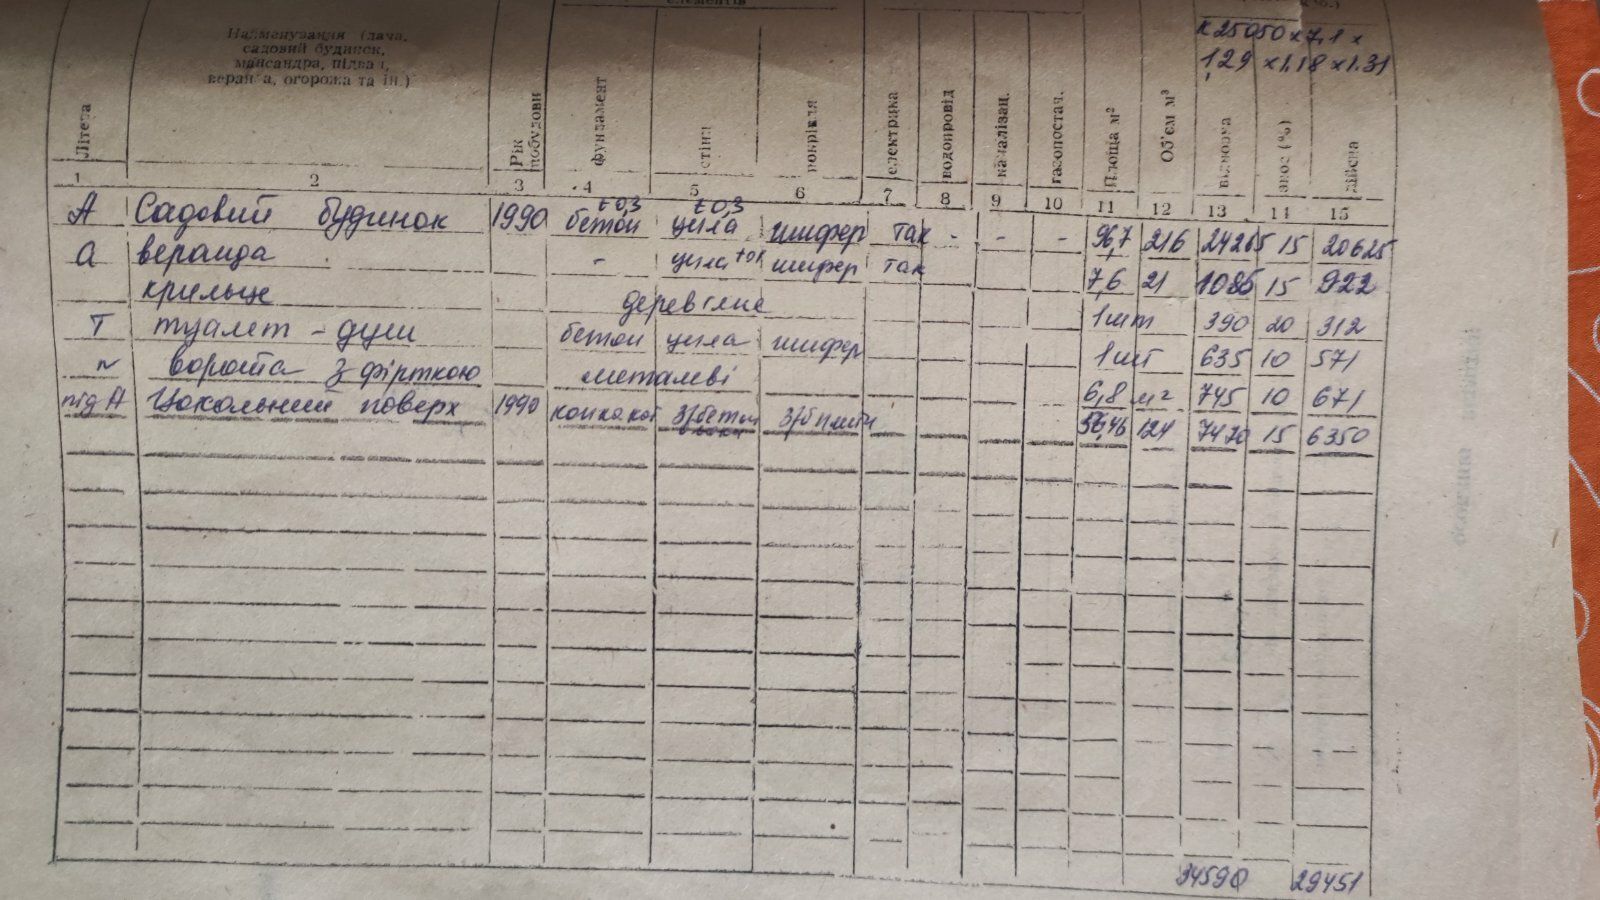 елементів
Найменування (дача,
садовий будинок,
мансарда, підвал,
веранда, огорожа та ін.)
к 25050 x 7,1 x
1,29 x 1.18 x 1.31
Літера
Рік побудови
фундамент
стіни
покрівля
електрика
водопровід
каналізац.
газопостач.
Площа м²
Об'єм м³
відновна
знос (%)
дійсна
1 2 3 4 5 6 7 8 9 10 11 12 13 14 15
А Садовий будинок 1990 бетон t 0,3 цегла t 0,3 шифер так - - - 96,7 216 24265 15 20625
а веранда - цегла шифер так 7,6 21 1085 15 922
крильце деревяне 1 шт 390 20 312
Т туалет - душ бетон цегла шифер 1 шт 635 10 571
N ворота з фірткою металеві 6,8 м² 745 10 671
під А Цокольний поверх 1990 з/бетон з/б плити 124 7420 15 6350
34590 29451